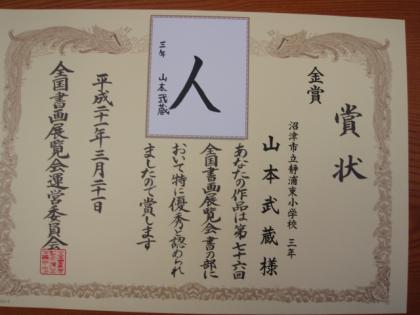 賞状
金賞
沼津市立静浦東小学校 三年
山本武蔵様
あなたの作品は第七十六回
全国書画展覧会書の部に
おいて特に優秀と認められ
ましたので賞します
平成二十一年三月二十一日
全国書画展覧会運営委員会
人
三年 山本武蔵